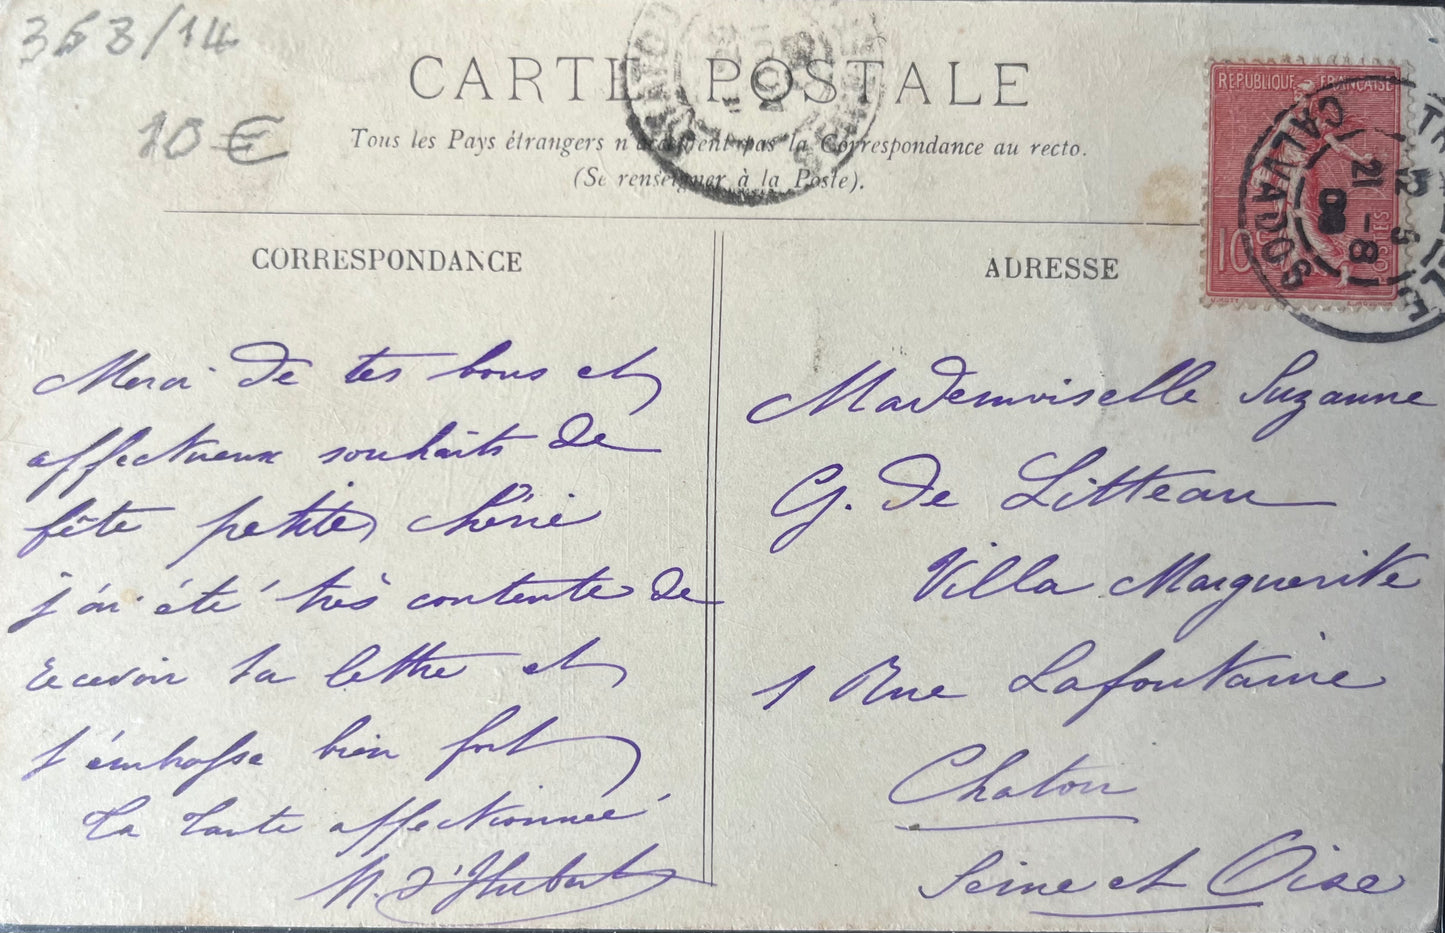 368/14
10 €
CARTE POSTALE
Tous les Pays étrangers n'acceptent pas la Correspondance au recto.
(Se renseigner à la Poste).
CORRESPONDANCE
ADRESSE
REPUBLIQUE FRANÇAISE
10
POSTES
CALVADOS
12 5
21 -8
08
Merci de tes bons et
affectueux souhaits de
fête petite chérie
j'ai été très contente de
recevoir ta lettre et
t'embrasse bien fort
Ta tante affectionnée
M. d'Hubert
Mademoiselle Suzanne
G. de Litteau
Villa Marguerite
1 Rue Lafontaine
Chatou
Seine et Oise